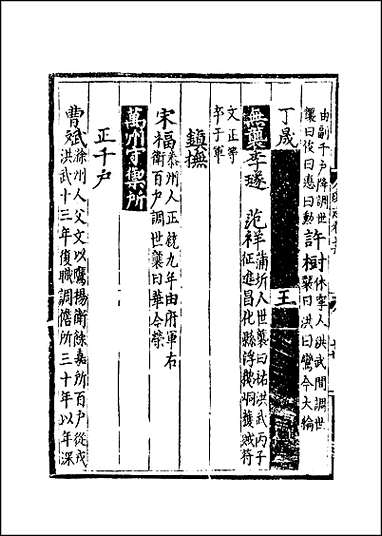 由副千户降調世
襲曰俊曰惠曰勳
許樹
休寧人洪武間調世
襲曰洪曰鸞今大綸
丁晟
王
無襲李璲
范祥
蒲圻人世襲曰祐洪武丙子
征進昌化縣浮鵝峒獲贼符
文正等
卒于軍
鎮撫
宋福
泰州人正統九年由府軍右
衛百户調世襲曰華今榮
萬州守禦所
正千户
曹斌
徐州人父文以鷹揚衛餘嘉所百户從戎
洪武十三年復職調儋所三十年以年深